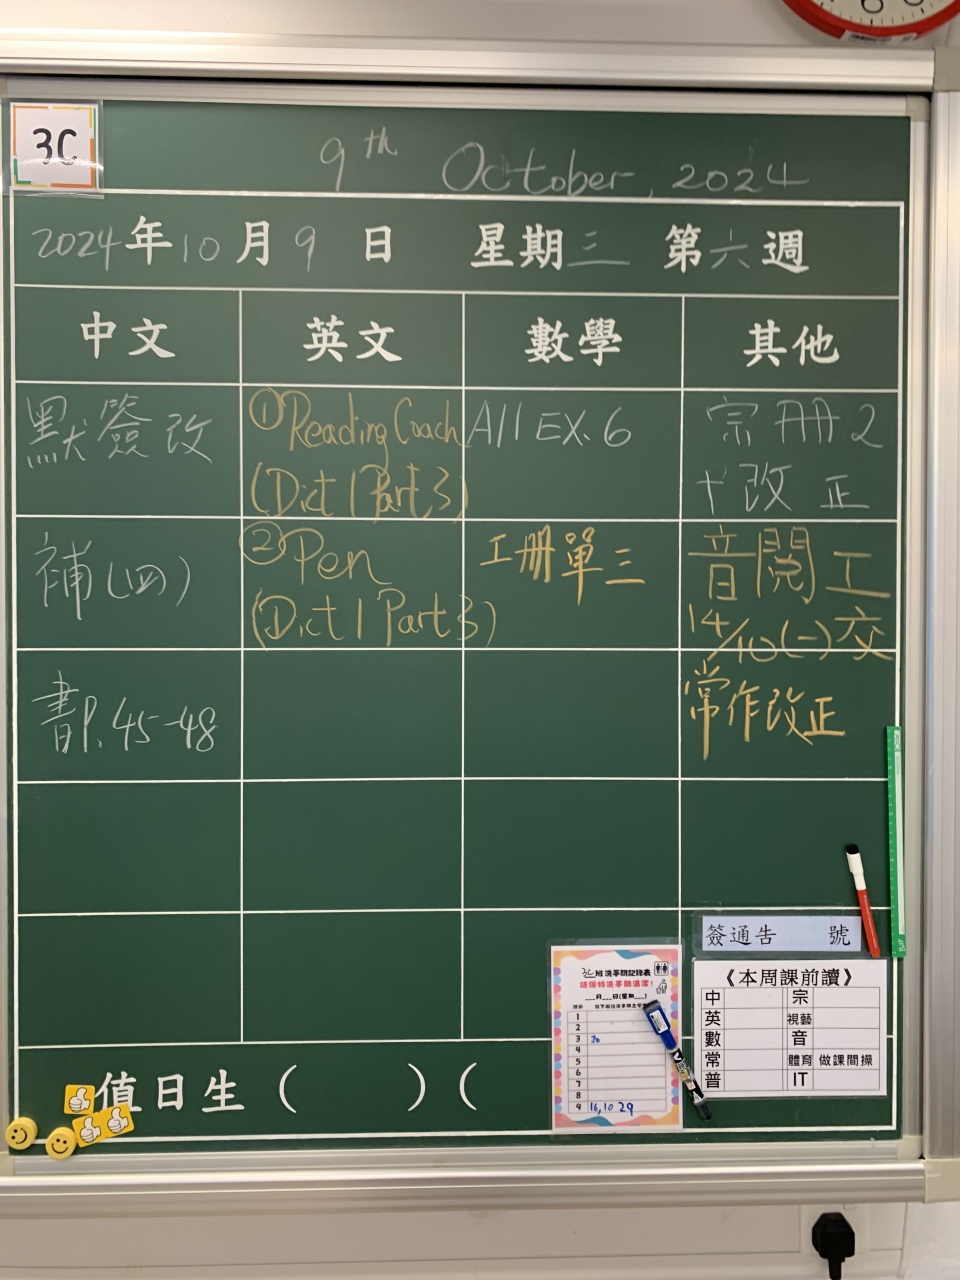 3C
9th October, 2024
2024年10月9日 星期三 第六週
中文 英文 數學 其他
默簽改
①Reading Coach
(Dict 1 Part 3)
All EX. 6
宗冊2
+改正
補(四)
②Pen
(Dict 1 Part 3)
工冊單三
音閱工
14/10(一)交
書P.45-48
常作改正
簽通告 號
《本周課前讀》
中 宗
英 視藝
數 音
常 體育 做課間操
普 IT
3C班洗手間記錄表
請保持洗手間清潔!
___月___日(星期___)
1
2
3 20
4
5
6
7
8
9 16,10 29
值日生 ( ) (